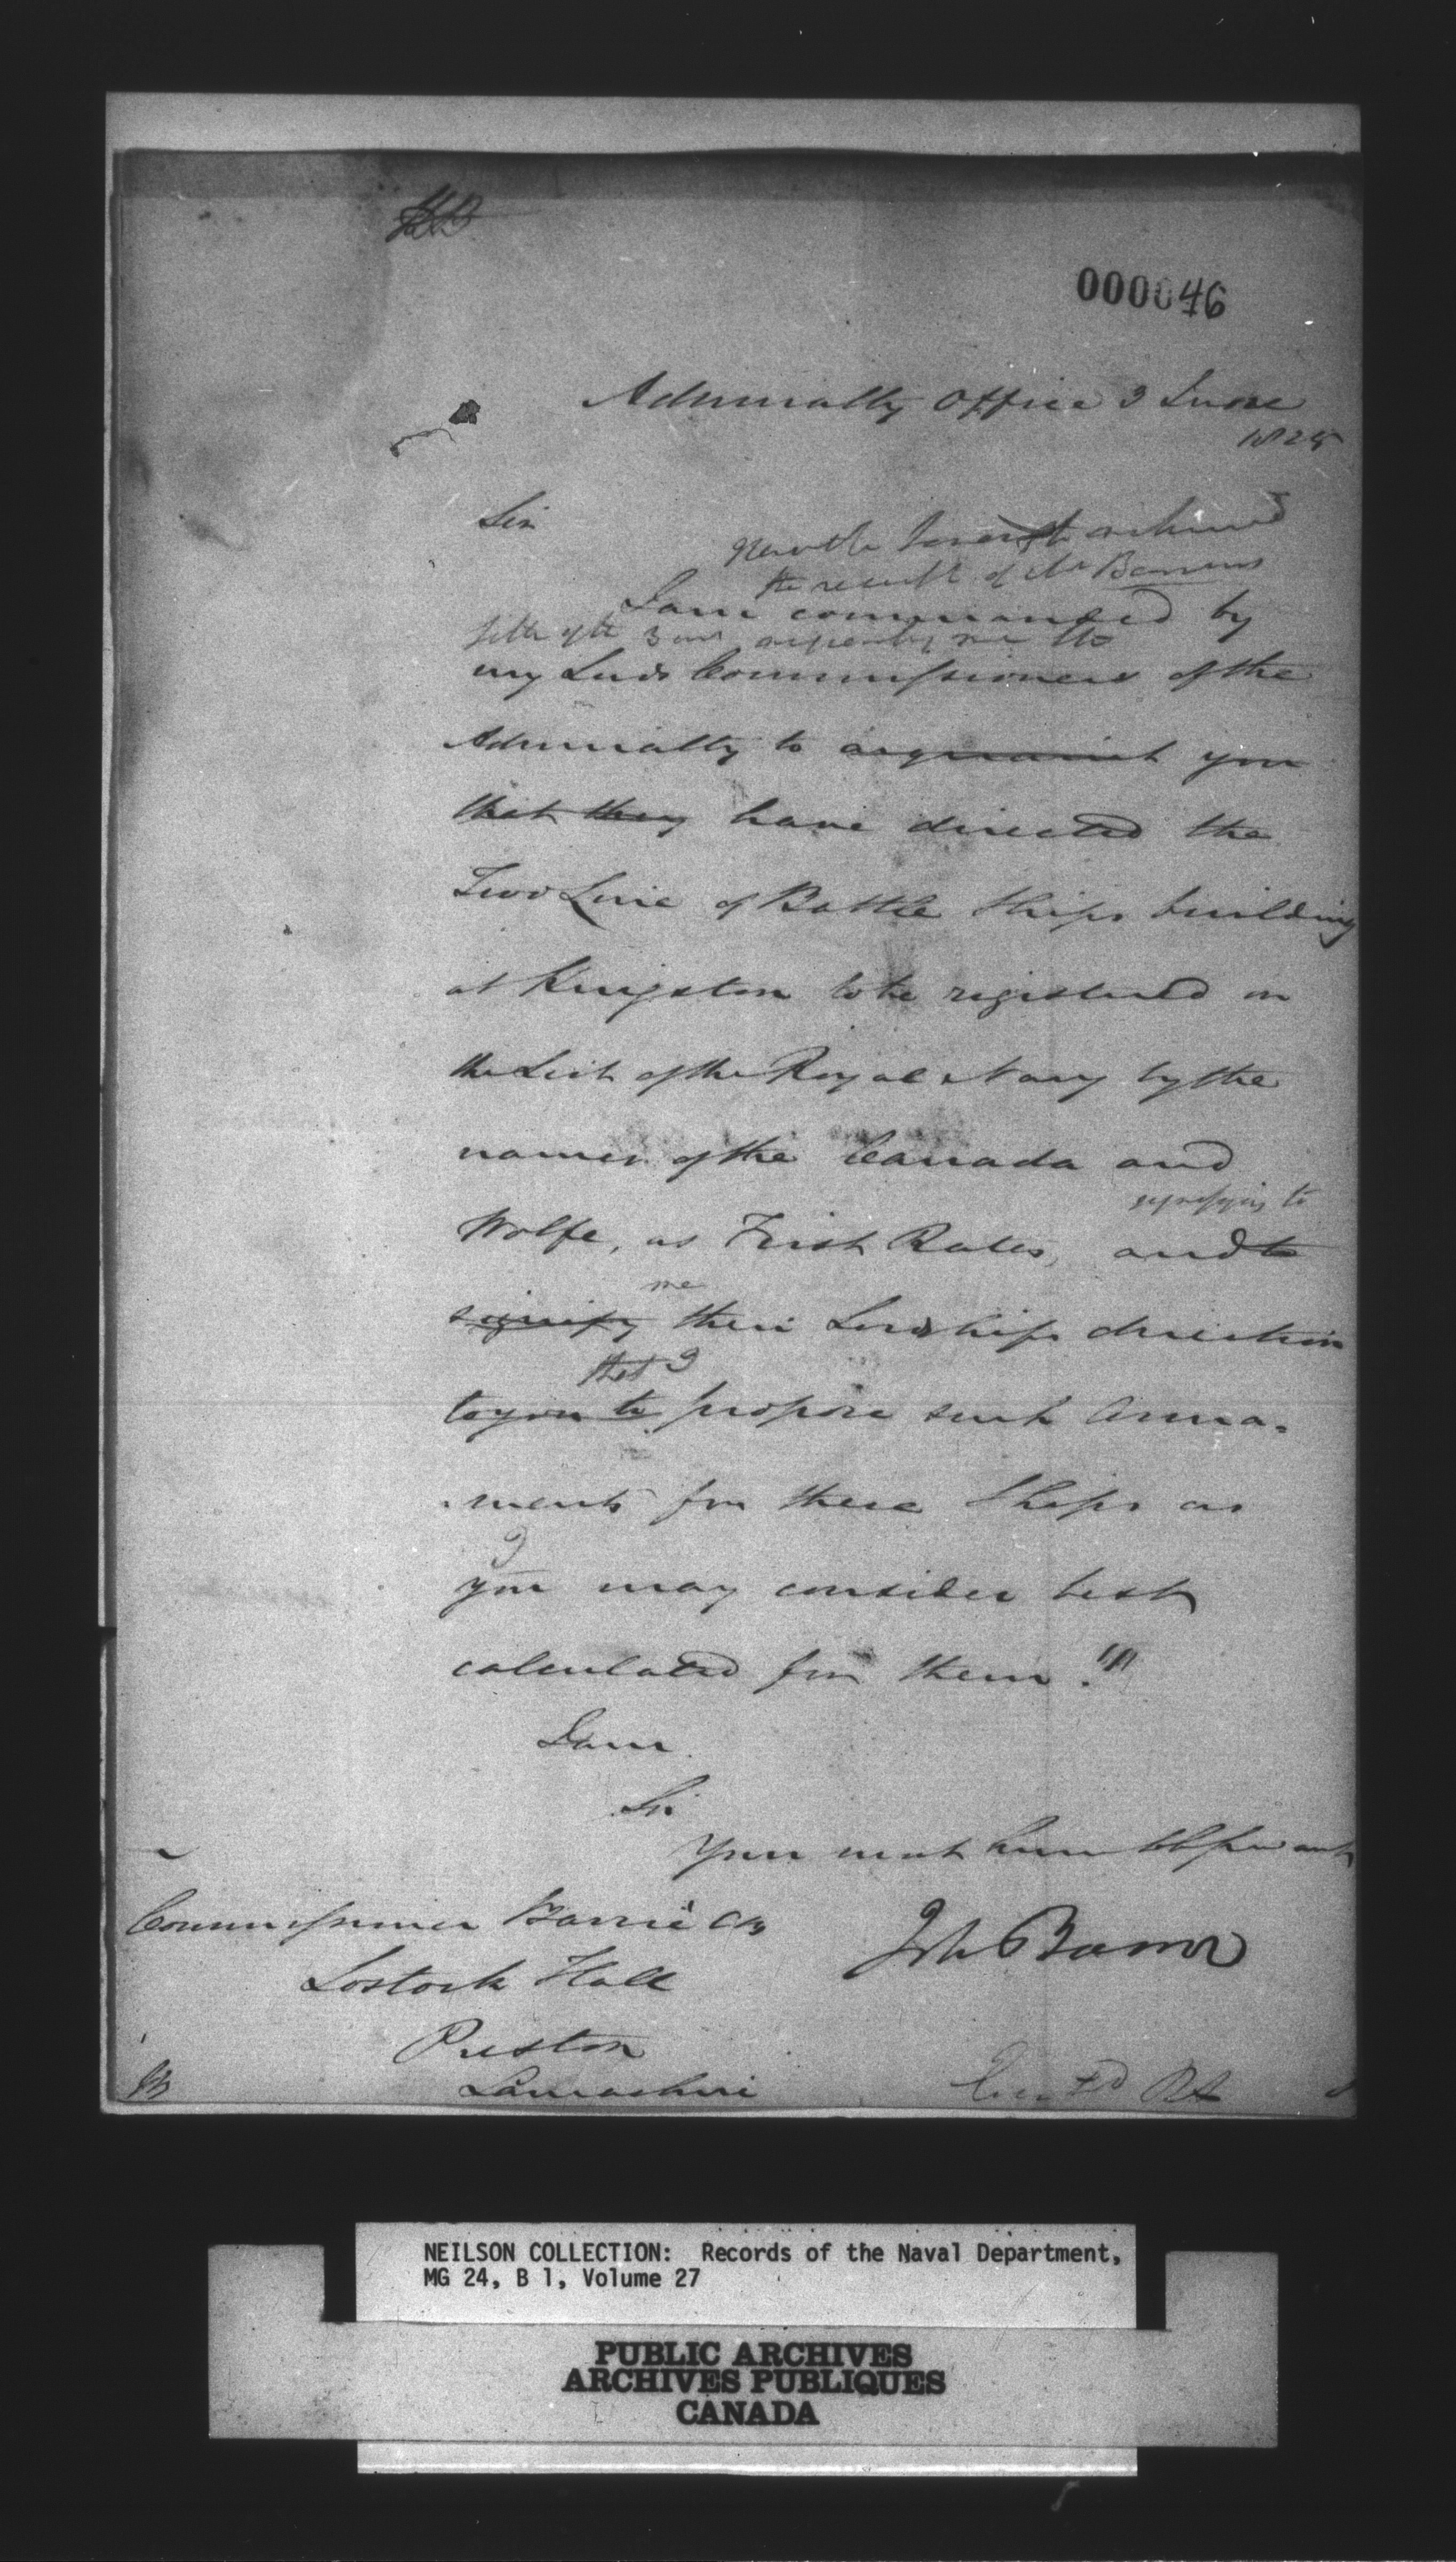 000046
Admiralty Office 3 June
1825
Sir
the receipt of Mr Barrows
I am commanded by
letter of the 3 acquainting me the
my Lords Commissioners of the
Admiralty to acquaint you
that they have directed the
Two Line of Battle Ships building
at Kingston to be registered on
the List of the Royal Navy by the
names of the Canada and
signifying to
Wolfe, as First Rates, and to
me
signify their Lordships direction
that I
to you to propose such Arma=
=ments for these Ships as
I
you may consider best
calculated for them."
I am
Sir
Your most humble Servant
Commissioner Barrie CB
John Barrow
Lostock Hall
Preston
Lancashire
NEILSON COLLECTION: Records of the Naval Department,
MG 24, B 1, Volume 27
PUBLIC ARCHIVES
ARCHIVES PUBLIQUES
CANADA